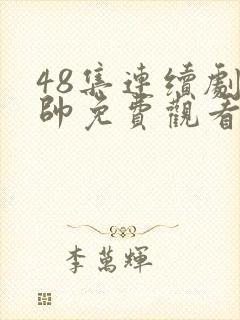 48集連續劇
帥免費觀看
李萬輝